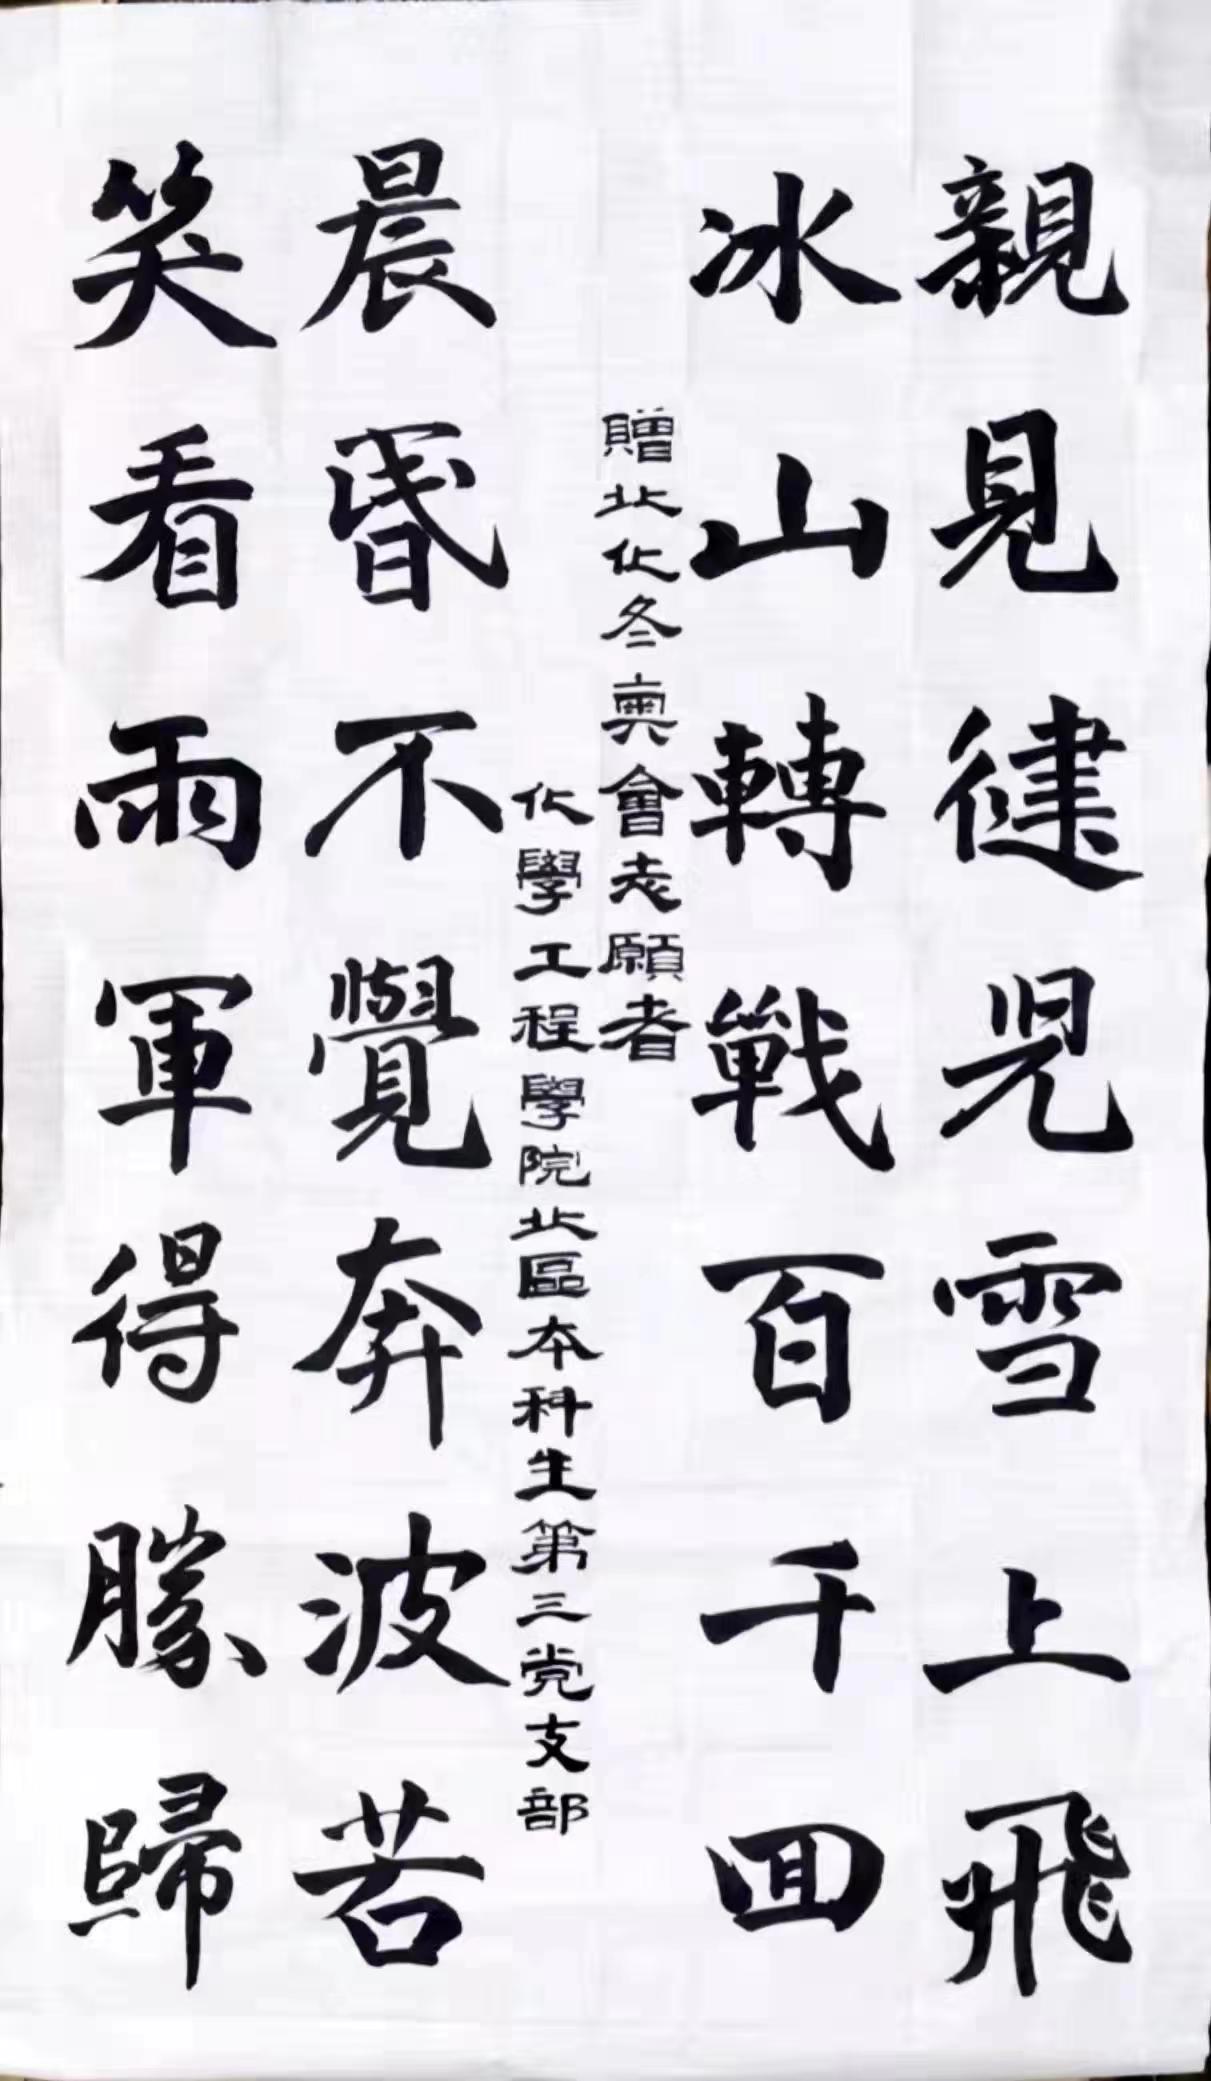 親見徤兒雪上飛
冰山轉戰百千回
贈北化冬奧會志願者
化學工程學院北區本科生第三党支部
晨昬不覺奔波苦
笑看兩軍得勝歸